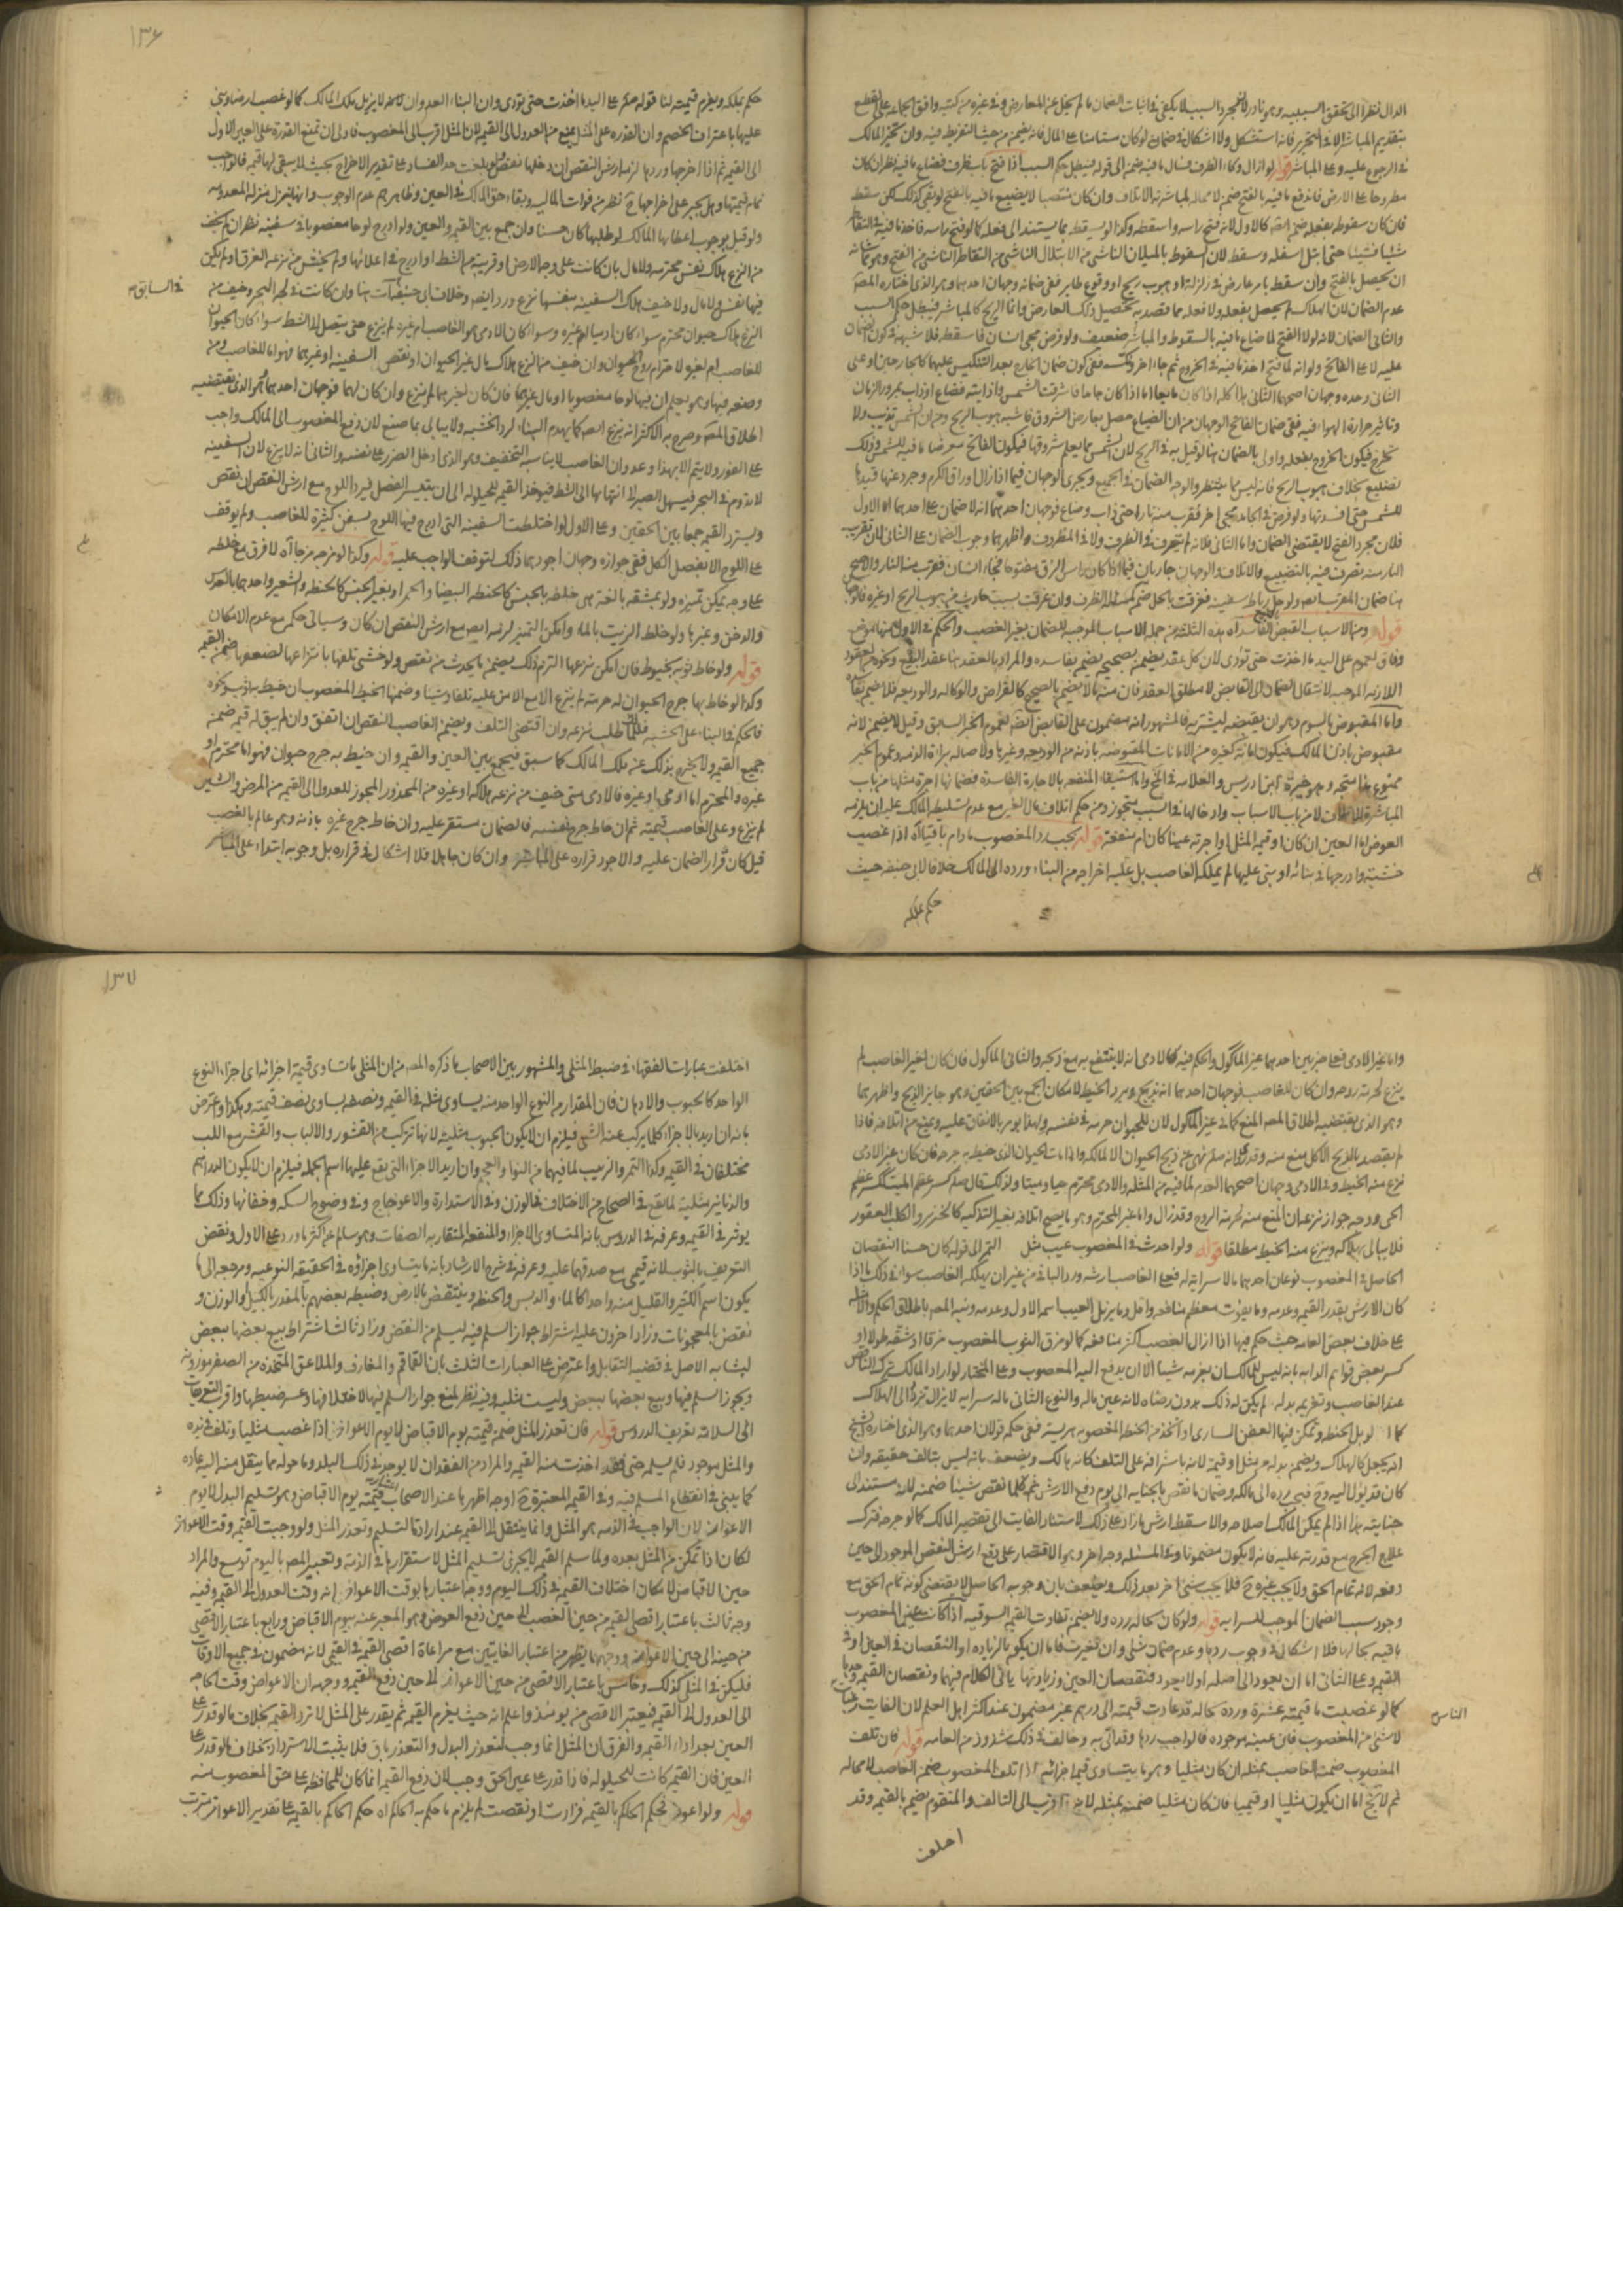 الدال نظرا الى تحقق السببيه وهو نادر لان مجرد السبب لا يكفي في اثبات الضمان ما لم يخل عن المعارض وفي غيره من كتبه وافق الجماعة على القطع
بتقديم المباشر الا في التحرير فانه استشكل ولا اشكال في ضمان لو كان مستامنا على المال فانه يضمنه من حيث التفريط فيه وان تخير المالك
في الرجوع عليه وعلى المباشر قوله ولو ازال وكاء الظرف فسال ما فيه ضمن الى قوله فيبطل حكم السبب اذا فتح باب ظرف فضاع ما فيه نظر ان كان
مطروحا على الارض فاندفع ما فيه بالفتح ضمنه لا محالة لمباشرته الاتلاف وان كان منتصبا لا يضيع ما فيه بالفتح لو بقي كذلك لكن سقط
فان كان سقوطه بفعله ضمن ايضا كالاول لانه فتح راسه واسقطه وكذا لو سقط بما يستند الى فعله كما لو فتح راسه فاخذ ما فيه في التقاطر
شيئا فشيئا حتى ابتل اسفله وسقط لان السقوط بالميلان الناشي من الابتلال الناشي من التقاطر الناشي من الفتح وهو مما شانه
ان يحصل بالفتح وان سقط بامر عارض في زلزلة او هبوب ريح او وقوع طاير ففي ضمانه وجهان احدهما وهو الذي اختاره المصنف
عدم الضمان لان الهلاك لم يحصل بفعله ولا فعله مما قصد به تحصيل ذلك العارض وانما الريح كالمباشر فيبطل حكم السبب
والثاني الضمان لانه لولا الفتح لما ضاع ما فيه بالسقوط والمباشر ضعيف ولو فرض مجي انسان فاسقطه فلا شبهة في كون الضمان
عليه لا على الفاتح ولو انه لما فتح اخذ ما فيه في الخروج ثم جاء اخر ونكسه ففي كون ضمان الخارج بعد التنكيس عليهما كالجارحين او على
الثاني وحده وجهان اصحهما الثاني هذا كله اذا كان مايعا اما اذا كان جامدا فاشرقت الشمس واذابته فضاع او ذاب بمرور الزمان
وتاثير حرارة الهواء فيه ففي ضمان الفاتح الوجهان من ان الضياع حصل بعارض الشروق فاشبه هبوب الريح ومن ان الشمس تذيب ولا
تخرج فيكون الخروج بفعله واولى بالضمان هنا لو قيل به في الريح لان الشمس مما يعلم شروقها فيكون الفاتح معرضا ما فيه للشمس وذلك
تضييع بخلاف هبوب الريح فانه ليس مما ينتظر والوجه الضمان في الجميع ويجري الوجهان فيما اذا ازال اوراق الكرم وجرد عنقيدها
للشمس حتى افسدتها ولو فرض في الجامد مجي اخر فقرب منه نارا حتى ذاب وضاع فوجهان احدهما انه لا ضمان على احدهما اما الاول
فلان مجرد الفتح لا يقتضي الضمان واما الثاني فلانه لم يتصرف في الظرف ولا في المظروف واظهرهما وجوب الضمان على الثاني لان تقريب
النار منه تصرف فيه بالتضييع والاتلاف والوجهان جاريان فيما اذا كان راس الزق مفتوحا فجاء انسان فقرب منه النار والاصح
هنا ضمان المقرب ايضا ولو حل رباط سفينه فغرقت بالحل ضمن كمسئلة الظرف وان غرقت بسبب حادث من هبوب الريح او غيره فالوجهان
قوله ومن الاسباب القبض بالبيع الفاسد آه هذه الثلثة من جملة الاسباب الموجبه للضمان بغير الغصب والحكم في الاول منها موضع
وفاق لعموم على اليد ما اخذت حتى تؤدى لان كل عقد يضمن بصحيحه يضمن بفاسده والمراد بالعقد هنا عقد البيع ونحوه من العقود
اللازمه الموجبه لانتقال الضمان الى القابض لا مطلق العقد فان منه ما لا يضمن بالصحيح كالقراض والوكاله والوديعه فلا يضمن بفاسده
واما المقبوض بالسوم وهو ان يقبضه ليشتريه فالمشهور انه مضمون على القابض ايضا لعموم الخبر السابق وقيل لا يضمن لانه
مقبوض باذن المالك فيكون امانة كغيره من الامانات المقبوضه باذنه من الوديعه وغيرها ولاصاله براة الذمه وعموم الخبر
ممنوع هذا متجه وهو خيرة ابن ادريس والعلامه في المختلف واما استيفاء المنفعه بالاجارة الفاسدة فضمانها اجرة مثلها من باب
المباشرة للاتلاف لا من باب الاسباب وادخالها في السبب متجوز ومن حكم اتلاف مال الغير مع عدم تسليطه المالك عليه ان يلزمه
العوض اما العين ان كان او قيمه المثل او اجرته عينا كان ام منفعة قوله يجب رد المغصوب مادام باقيا آه اذا غصب
خشبة وادرجها في بنائه او بنى عليها لم يملكها الغاصب بل عليه اخراجه من البناء ورده الى المالك خلافا لابي حنيفه حيث
حكم بملكه
١٣٦
حكم بملكه ويغرم قيمته لنا قوله صلم على اليد ما اخذت حتى تؤدى وان البناء العدوان لا يزيل ملك المالك كما لو غصب ارضا وبنى
عليها باعتراف الخصم وان القدرة على المثل يمنع من العدول الى القيم لان المثل اقرب الى المغصوب فاولى ان تمنع القدرة على العين الاول
الى القيم ثم اذا اخرجها وردها لزمه ارش النقص ان دخلها نقص ولو بلغت حد الفساد على تقدير الاخراج بحيث لا يبقى لها قيمه فالواجب
تمام قيمتها وهل يجبر على اخراجها ح نظر من فوات الماليه وبقاء حق المالك في العين وظاهرهم عدم الوجوب وانها تنزل منزلة المعدومه
ولو قيل بوجوب اعطائها المالك لو طلبها كان حسنا وان جمع بين القيمه والعين ولو ادرج لوحا مغصوبا في سفينه نظر ان لم يخف
من النزع هلاك نفس محترمه ولا مال بان كانت على وجه الارض او قريبه من الشط او ادرج في اعلائها ولم يخش من نزعه الغرق او لم يكن
فيها نفس ولا مال ولا خيف هلاك السفينه نفسها نزع ورد ايضا وخلاف ابي حنيفه آت هنا وان كانت في لجة البحر وخيف من
في السابق
النزع هلاك حيوان محترم سواء كان ادميا ام غيره وسواء كان الادمي هو الغاصب ام غيره لم ينزع حتى يتصل الى الشط سواء كان الحيوان
للغاصب ام لغيره لاحترام روح الحيوان وان خيف من النزع هلاك مال غير الحيوان او نقص السفينه او غيرهما فهو اما للغاصب ومن
وضعه فيها وهو يعلم ان فيها لوحا مغصوبا او مال غيرهما فان كان لغيرهما لم ينزع وان كان لهما فوجهان احدهما وهو الذي يقتضيه
اطلاق المصنف وصرح به الاكثر انه ينزع ايضا كما يهدم البناء لرد الخشبه ولا يبالى بما صنع لان دفع المغصوب الى المالك واجب
على الفور ولا يتم الا بهذا وعدوان الغاصب لا يناسبه التخفيف وهو الذي ادخل الضرر على نفسه والثاني انه لا ينزع لان السفينه
لا تدوم في البحر فيسهل الصبر الى انتهائها الى الشط فيوخذ القيم للحيلوله الى ان يتيسر الفصل فيرد اللوح مع ارش النقص ان نقص
ويسترد القيمه جمعا بين الحقين وعلى الاول لو اختلطت السفينه التي ادرج فيها اللوح بسفن كثيرة للغاصب ولم يوقف
على اللوح الا بفصل الكل ففي جوازه وجهان اجودهما ذلك لتوقف الواجب عليه قوله وكذا لو مزجه مزجا آه لا فرق مع خلطه
على وجه يمكن تميزه ولو بمشقه بالغة بين خلطه بالجنس كالحنطه البيضا والحمرا وبغير الجنس كالحنطه والشعير واحدهما بالعدس
والدخن وغيرها ولو خلط الزيت بالماء وامكن التميز لزمه ايضا مع ارش النقص ان كان وسياتي حكمه مع عدم الامكان
قوله ولو خاط ثوبه بخيوط فان امكن نزعها الزم ذلك يضمن ما يحدث من نقص ولو خشى تلفها بانتزاعها لضعفها ضمن القيمه
وكذا لو خاط بها جرح الحيوان له حرمة لم ينزع الا مع الامن عليه تلفا وشينا وضمنها الخيط المغصوب ان خيط به ثوب ونحوه
فالحكم في البناء على الخشبه فللمالك طلب نزعه وان اقتضى التلف ويضمن الغاصب النقص ان اتفق وان لم يبق له قيمه ضمنه
جميع القيمه ولا يخرج بذلك عن ملك المالك كما سبق فيجمع بين العين والقيمه وان خيط به جرح حيوان فهو اما محترم او
غيره والمحترم اما ادمي او غيره فالادمي متى خيف من نزعه هلاكه او غيره من المحذور المجوز للعدول الى القيمه من المرض والشين
لم ينزع وعلى الغاصب قيمته ثم ان خاط جرح نفسه فالضمان مستقر عليه وان خاط جرح غيره باذنه وهو عالم بالغصب
قيل كان قرار الضمان عليه والاجود قراره على المباشر وان كان جاهلا فلا اشكال في قراره بل وجوبه ابتداء على المباشر
واما غير الادمي فعلى ضربين احدهما غير المأكول والحكم فيه كالادمي انه لا ينتفع به مع ذبحه والثاني المأكول فان كان لغير الغاصب لم
ينزع لحرمة روحه وان كان للغاصب فوجهان احدهما انه يذبح ويرد الخيط لامكان الجمع بين الحقين وهو جايز الذبح واظهرهما
وهو الذي يقتضيه اطلاق المصنف المنع كما في غير المأكول لان للحيوان حرمة في نفسه ولهذا يومر بالانفاق عليه ويمنع من اتلافه فاذا
لم يقصد بالذبح الاكل يمنع منه وقد روى انه صلم نهى عن ذبح الحيوان الا لاكله واذا مات الحيوان الذي خيط به جرحه فان كان غير الادمي
نزع منه الخيط وفي الادمي وجهان اصحهما العدم لما فيه من المثله والادمي محترم حيا وميتا ولذلك قال صلم كسر عظم الميت ككسر عظم
الحي ووجه جواز نزعه ان المنع منه لحرمة الروح وقد زال واما غير المحترم وهو ما يصح اتلافه بغير التذكيه كالخنزير والكلب العقور
فلا يبالى بهلاكه وينزع منه الخيط مطلقا قوله ولو احدث في المغصوب عيب مثل التمر الى قوله كان حسنا النقصان
الحاصل في المغصوب نوعان احدهما ما لا سراية له فعلى الغاصب ارشه ورد الباقي من غير ان يملكه الغاصب سواء في ذلك ما اذا
كان الارش بقدر القيمه وعدمه وما يفوت معظم منافعه واقل وما يزيل العيب اسمه الاول وعدمه ونبه المصنف باطلاق الحكم والامثلة
على خلاف بعض العامه حيث حكم فيما اذا ازال الغصب اكثر منافعه كما لو مزق الثوب المغصوب مزقا او شقه طولا او
كسر بعض قوائم الدابه بانه ليس للمالك ان يغرمه شيئا الا ان يدفع اليه المغصوب وعلى المختار لو اراد المالك ترك الناقص
عند الغاصب وتغريمه بدله لم يكن له ذلك بدون رضاه لانه عين ماله والنوع الثاني ما له سرايه لا يزال تتزايد الى الهلاك
كما لو بل الحنطه وتمكن فيها العفن الساري او اتخذ من الحنطه المغصوبه هريسة ففي حكمه قولان احدهما وهو الذي اختاره الشيخ
انه يجعل كالهالك ويضمن بدله من مثل او قيمه لانه باشرافه على التلف كانه هالك ويضعف بانه ليس بتالف حقيقة وان
كان قد يؤل اليه وح فيجب رده الى مالكه وضمان ما نقص بالجنايه الى يوم دفع الارش ثم كلما نقص شيئا ضمنه لانه مستند الى
جنايته هذا اذا لم يمكن المالك اصلاحه والا سقط ارش ما زاد على ذلك لاستناد الفايت الى تقصير المالك كما لو جرحه فترك
علاج الجرح مع قدرته عليه فانه لا يكون مضمونا وفي المسئله وجه اخر وهو الاقتصار على دفع ارش النقص الموجود الى حين
دفعه لانه تمام الحق ولا يجب غيره ح فلا يجب شيء اخر بعد ذلك ويضعف بان وجوبه الحاصل لا يقتضي كونه تمام الحق مع
وجود سبب الضمان الموجب للسرايه قوله ولو كان بحاله رده ولا يضمن تفاوت القيم السوقيه اذا كانت عين المغصوب
باقيه بحالها فلا اشكال في وجوب ردها وعدم ضمان شيء وان تغيرت فاما ان يكون بالزياده او النقصان في العين او في
القيمه وعلى الثاني اما ان يعود الى اصله او لا يعود فنقصان العين وزيادتها ياتي الكلام فيهما ونقصان القيم وحدها
كما لو غصب ما قيمته عشرة ورده بحاله قد عادت قيمته الى درهم غير مضمون عند اكثر اهل العلم لان الفايت رغبات
الناس
لا شيء من المغصوب فان عينه موجوده فالواجب ردها وقد اتى به وخالف في ذلك شذوذ من العامه قوله فان تلف
المغصوب ضمنه الغاصب بمثله ان كان مثليا وهو ما يتساوى قيمة اجزائه اذا تلف المغصوب ضمنه الغاصب لا محاله
ثم لا يخ اما ان يكون مثليا او قيميا فان كان مثليا ضمنه بمثله لانه اقرب الى التالف والمتقوم يضمن بالقيمه وقد
اختلف
١٣٧
اختلفت عبارات الفقهاء في ضبط المثلي والمشهور بين الاصحاب ما ذكره المصنف من ان المثلي ما تساوى قيمة اجزائه اي اجزاء النوع
الواحد كالحبوب والادهان فان المقدار من النوع الواحد منه يساوي مثله في القيمه ونصفه يساوي نصف قيمته وهكذا واعترض
بانه ان اريد بالاجزاء كلما يركب عنه الشيء فيلزم ان لا يكون الحبوب مثلية لانها تركب من القشور والالباب والقشر مع اللب
مختلفان في القيمه وكذا التمر والزبيب لما فيهما من النوا والعجم وان اريد الاجزاء التي يقع عليها اسم الجمله فيلزم ان لا يكون الدراهم
والدنانير مثلية لما يقع في الصحاح من الاختلاف في الوزن وفي الاستدارة والاعوجاج وفي وضوح السكه وخفائها وذلك مما
يوثر في القيمه وعرفه في الدروس بانه المتساوي الاجزاء والمنفعه المتقاربه الصفات وهو سالم عن اكثر ما ورد على الاول ونقض
التعريف بالثوب لانه قيمي مع صدقهما عليه وعرفه في شرح الارشاد بانه ما يتساوى اجزاؤه في الحقيقه النوعيه ومرجعه الى ما
يكون اسم الكثير والقليل منه واحدا كالماء والدبس والحنطه وينتقض بالارض وضبطه بعضهم بالمقدر بالكيل او الوزن و
نقض بالمعجونات وزاد اخرون عليه اشتراط جواز السلم فيه ليسلم من النقض وزاد ثالث اشتراط بيع بعضها ببعض
لتشابه الاصل في قضيه التقابل واعترض على العبارات الثلث بان القماقم والمغارف والملاعق المتخذه من الصفر موزونه
ويجوز السلم فيها وبيع بعضها ببعض وليست مثليه وفيه نظر لمنع جواز السلم فيها لاختلافها وعسر ضبطها واقرب التعريفات
الى السلامة تعريف الدروس قوله فان تعذر المثل ضمن قيمته يوم الاقباض لا يوم الاعواز اذا غصب مثليا وتلف في يده
والمثل موجود فلم يسلمه حتى فقد اخذت منه القيمه والمراد من الفقدان لا يوجد في ذلك البلد وما حوله مما ينقل منه اليه عاده
كما يبنى في انقطاع المسلم فيه وفي القيمه المعتبرة ح اوجه اظهرها عند الاصحاب قيمته يوم الاقباض وهو تسليم البدل لا يوم
الاعواز لان الواجب في الذمه هو المثل وانما ينتقل الى القيمه عند ارادة التسليم وتعذر المثل ولو وجبت القيمه وقت الاعواز
لكان اذا تمكن من المثل بعده ولما سلم القيم لا يجزى تسليم المثل لاستقرارها في الذمة وتعبير المصنف باليوم توسع والمراد
حين الاقباض لامكان اختلاف القيمه في ذلك اليوم ووجه اعتبارها بوقت الاعواز انه وقت العدول الى القيمه وفيه
وجه ثالث باعتبار اقصى القيم من حين الغصب الى حين دفع العوض وهو المعبر عنه بيوم الاقباض ورابع باعتبار الاقصى
من حينه الى حين الاعواز ووجههما يظهر من اعتبار الغايتين مع مراعاة اقصى القيم في القيمي لانه مضمون في جميع الاوقات
فليكن في المثل كذلك وخامس باعتبار الاقصى من حين الاعواز الى حين دفع القيمه ووجهه ان الاعواز وقت الحاجه
الى العدول الى القيمه فيعتبر الاقصى من يومئذ واعلم انه حيث يغرم القيمه ثم يقدر على المثل لا ترد القيمه بخلاف ما لو قدر على
العين بعد اداء القيمه والفرق ان المثل انما وجب لتعذر البدل والتعذر باق فلا يثبت الاسترداد بخلاف ما لو قدر على
العين فان القيمه كانت للحيلوله فاذا قدر على عين الحق وجب لان دفع القيم انما كان للمحافظه على حق المغصوب منه
قوله ولو اعوز فحكم الحاكم بالقيمه فزادت او نقصت لم يلزم ما حكم به الحاكم اه حكم الحاكم بالقيمه على تقدير الاعواز مترتب